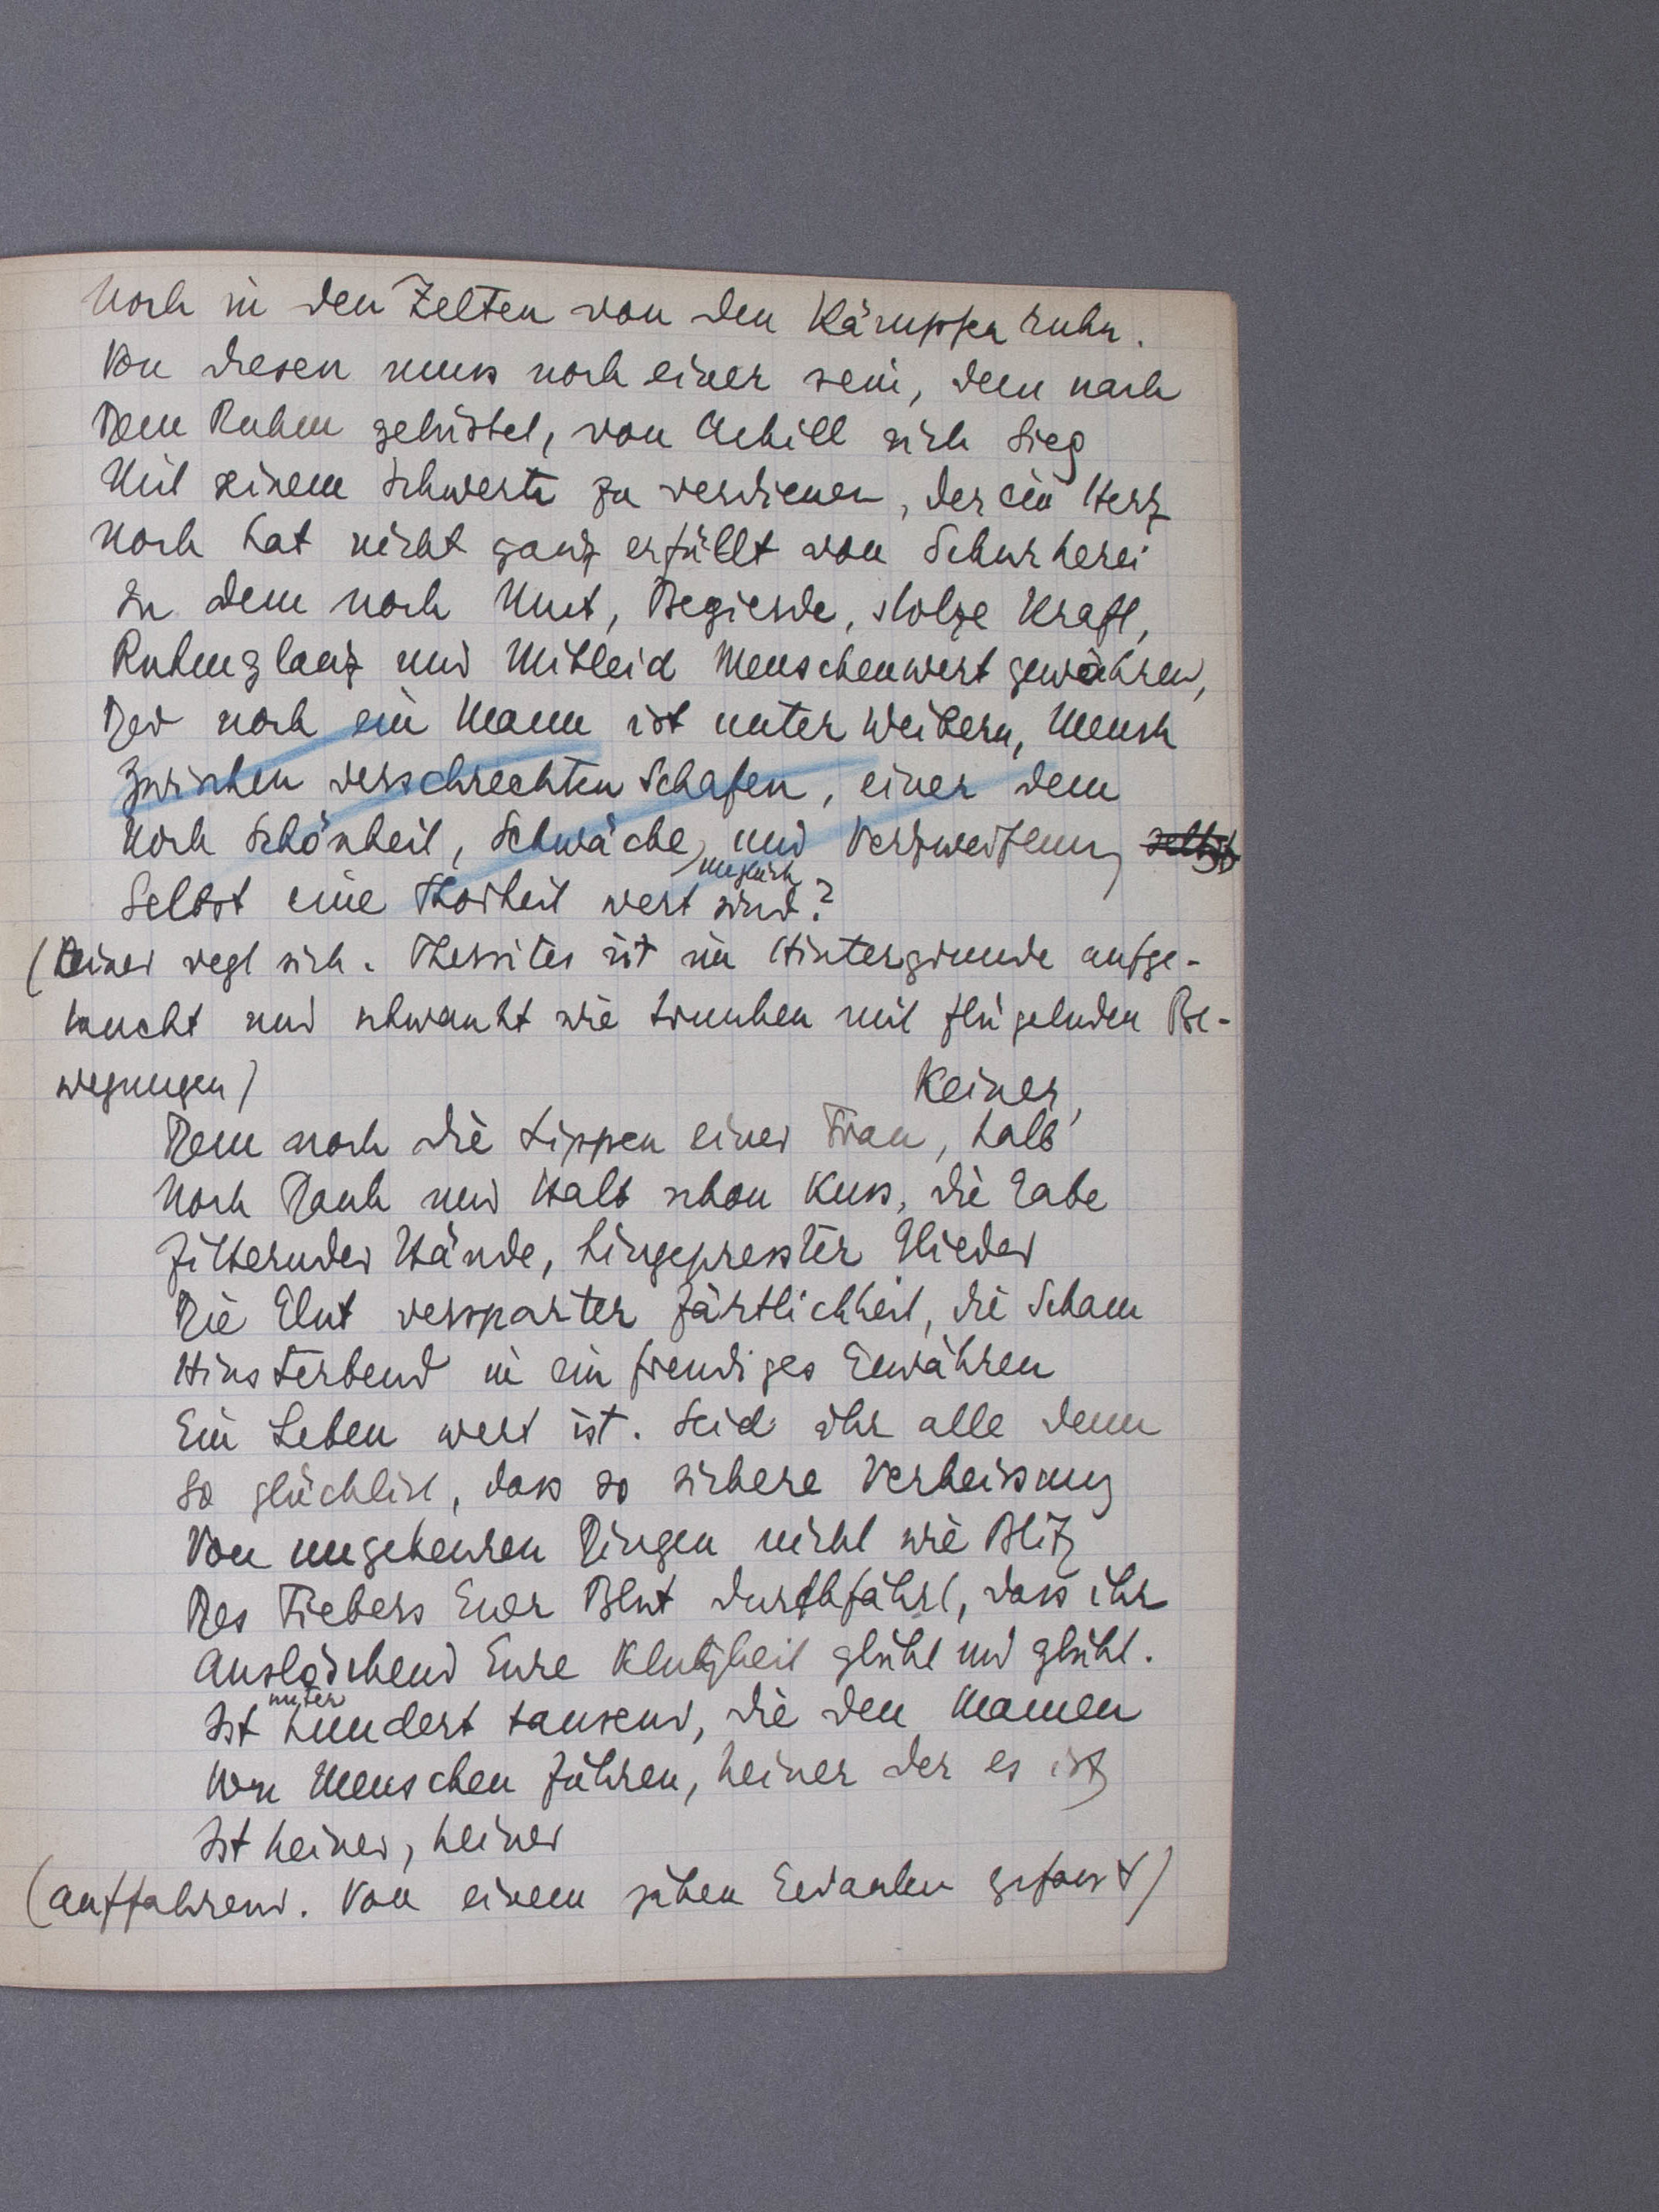 Noch in den Zelten von den Kämpfen ruhn.
Von diesen muss noch einer sein, dem nach
Dem Ruhm gelüstet, von Achill sich Sieg
Mit seinem Schwerte zu verdienen, der ein Herz
Noch hat nicht ganz erfüllt von Schurkerei
In dem noch Mut, Begierde, stolze Kraft,
Ruhmglanz und Mitleid Menschenwert gewähren,
Der noch ein Mann ist unter Weibern, Mensch
Zwischen verschreckten Schafen, einer dem
Noch Schönheit, Schwäche, und Verzweiflung selbst
Selbst eine Thorheit wert sind?
(Keiner regt sich. Thersites ist im Hintergrunde aufge-
taucht und schwankt wie trunken mit flügelnden Be-
wegungen)
Keiner,
Dem noch die Lippen einer Frau, halb
Noch Dank und Halb schon Kuss, die Gabe
Zitternder Hände, hingepresster Glieder
Die Glut versparter Zärtlichkeit, die Scham
Hinsterbend in ein freudiges Gewähren
Ein Leben wert ist. Seid ihr alle denn
So glücklich, dass so sichere Verheissung
Von ungeheuren Dingen nicht wie Blitz
Des Fiebers Euer Blut durchfährt, dass ihr
Auslöschend Eure Klugheit glüht und glüht.
Ist unter hundert tausend, die den Namen
Von Menschen führen, keiner der es ist,
Ist keiner, keiner
(auffahrend. Von einem jähen Gedanken gefasst)